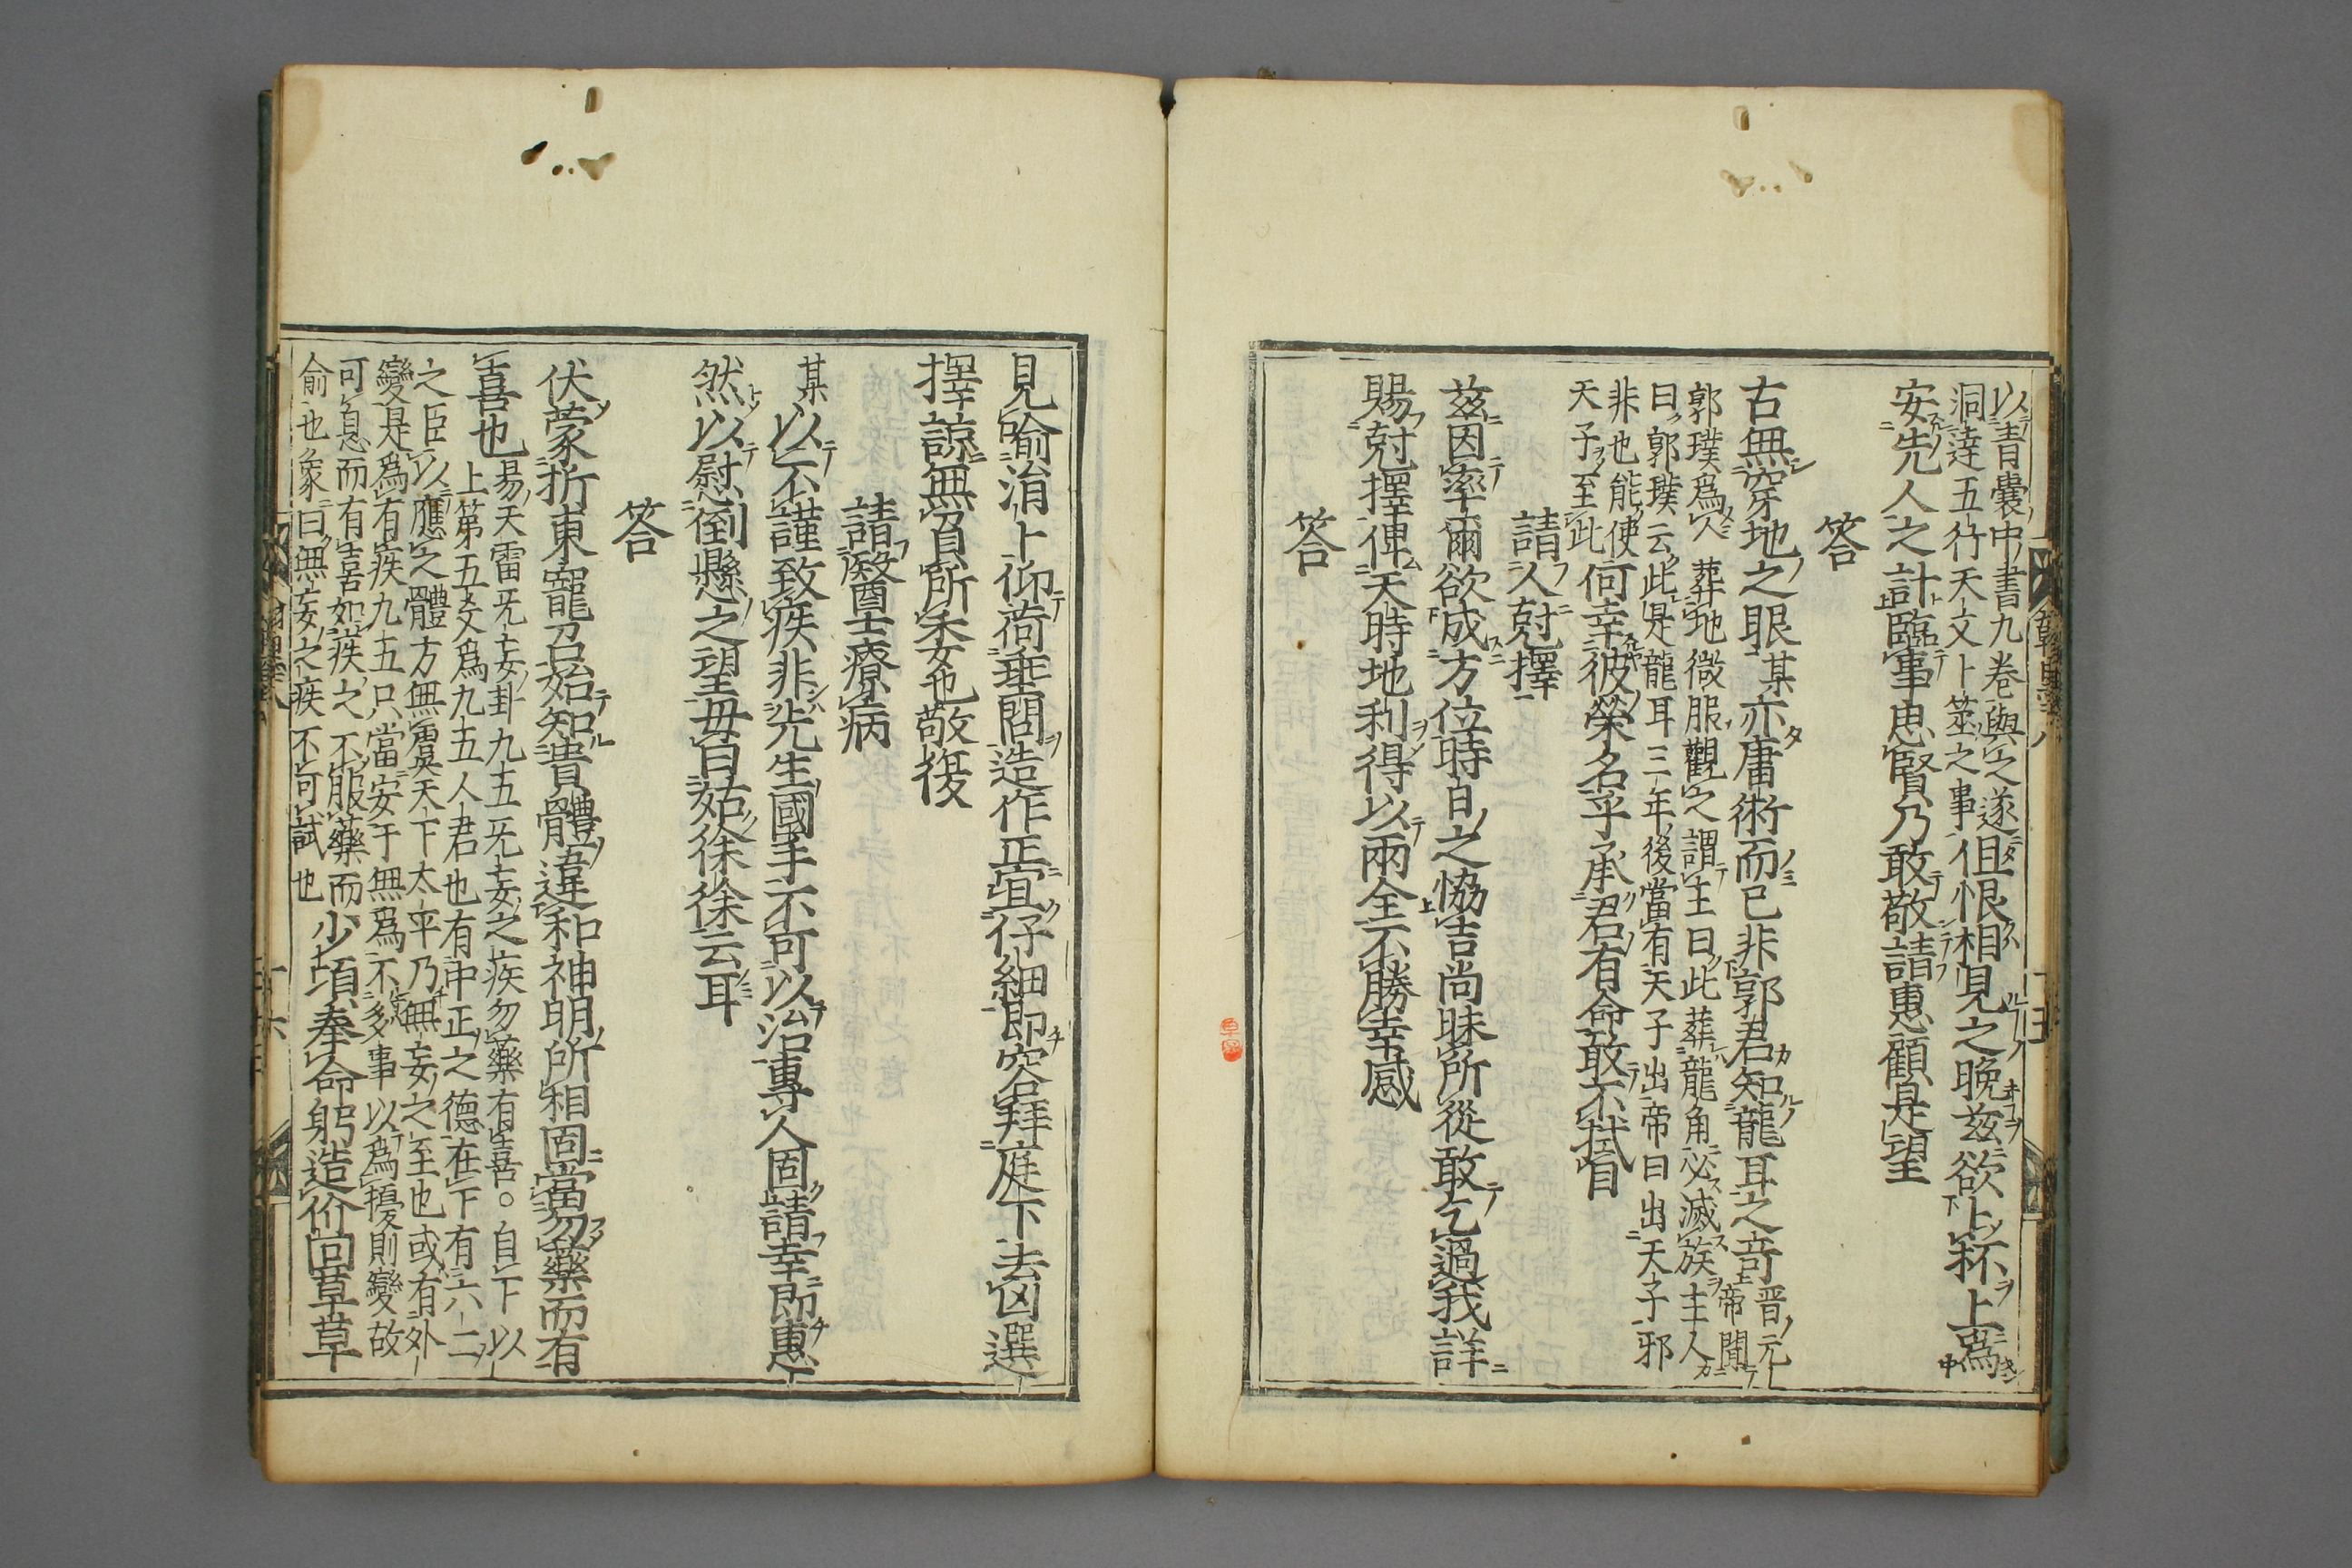 以青囊中書九卷與之遂
洞達五行天文卜筮之事但恨相見之晚茲欲上抔上爲
安先人之計臨事思賢乃敢敬請惠顧是望
答
古無穿地之眼某亦庸術而已非郭君知龍耳之奇晋元
帝聞
郭璞爲人葬地微服觀之謂主曰此葬龍角必滅族主人
曰郭璞云此是龍耳三年後當有天子出帝曰出天子邪
非也能使
天子至此何幸彼榮名乎承君有命敢不拭目
請人尅擇
茲因率爾欲成方位時日之恊吉尚昧所從敢乞過我詳
賜尅擇俾天時地利得以兩全不勝幸感
答
見喻涓卜仰荷垂問造作正宜仔細即容拜庭下去凶選
擇諒無負所委也敬復
請醫士療病
某以不謹致疾非先生國手不可以治專人固請幸即惠
然以慰倒懸之望毋曰姑徐徐云耳
答
伏蒙折柬寵召始知貴體違和神明所相固當勿藥而有
喜也
易天雷旡妄卦九五旡妄之疾勿藥有喜。自下以
上第五爻爲九五人君也有中正之德在下有六二
之臣以應之體方無虞天下太平乃無妄之至也或有外
變是爲有疾九五只當安于無爲不多事以爲擾則變故
可息而有喜如疾之不服藥而
俞也象曰無妄之疾不可試也少頃奉命躬造价回草草